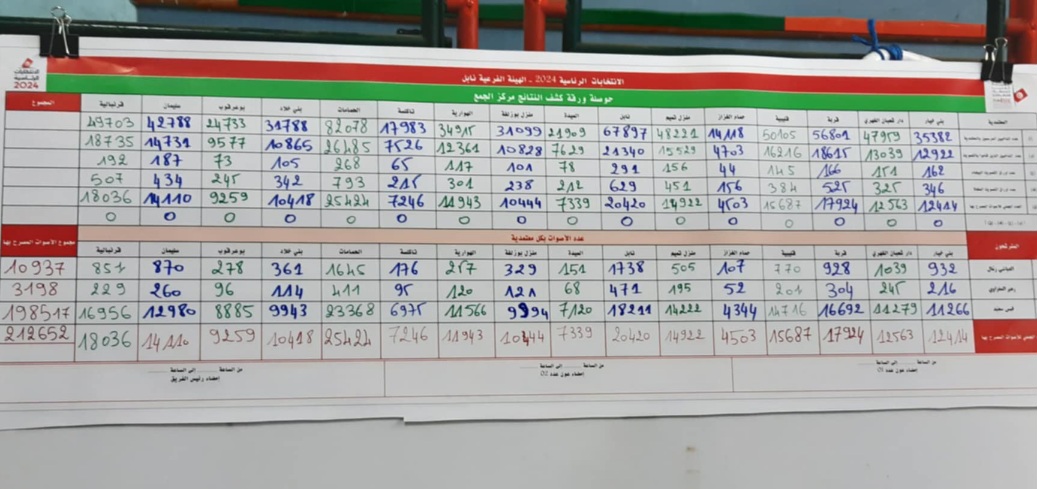 الانتخابات الرئاسية 2024 - الهيئة الفرعية نابل
الانتخابات الرئاسية 2024
حوصلة ورقة كشف النتائج مركز الجمع
المعتمدية بني خيار دار شعبان الفهري قربة قليبية حمام الغزاز منزل تميم نابل الميدة منزل بوزلفة الهوارية تاكلسة الحمامات بني خلاد بوعرقوب سليمان قرنبالية المجموع
35382 47959 56801 50105 14118 48221 67897 21909 31099 34915 17983 82078 31788 24733 42788 49703
12922 13039 18615 16216 4703 15529 21340 7629 10828 12361 7526 26485 10865 9577 14731 18735
162 151 166 145 44 156 291 78 101 117 65 268 105 73 187 192
346 325 525 384 156 451 629 212 238 301 215 793 342 245 434 507
12414 12563 17924 15687 4503 14922 20420 7339 10444 11943 7246 25424 10418 9259 14110 18036
0 0 0 0 0 0 0 0 0 0 0 0 0 0 0 0
المترشحون عدد الأصوات بكل معتمدية مجموع الأصوات المصرح بها
بني خيار دار شعبان الفهري قربة قليبية حمام الغزاز منزل تميم نابل الميدة منزل بوزلفة الهوارية تاكلسة الحمامات بني خلاد بوعرقوب سليمان قرنبالية
العياشي زمال 932 1039 928 770 107 505 1738 151 329 257 176 1645 361 278 870 851 10937
زهير المغزاوي 216 245 304 201 52 195 471 68 121 120 95 411 114 96 260 229 3198
قيس سعيد 11266 11279 16692 14716 4344 14222 18211 7120 9994 11566 6975 23368 9943 8885 12980 16956 198517
12414 12563 17924 15687 4503 14922 20420 7339 10444 11943 7246 25424 10418 9259 14110 18036 212652
من الساعة .......... إلى الساعة .......... من الساعة .......... إلى الساعة .......... من الساعة .......... إلى الساعة ..........
إمضاء عون عدد 01 إمضاء عون عدد 02 إمضاء رئيس الفريق